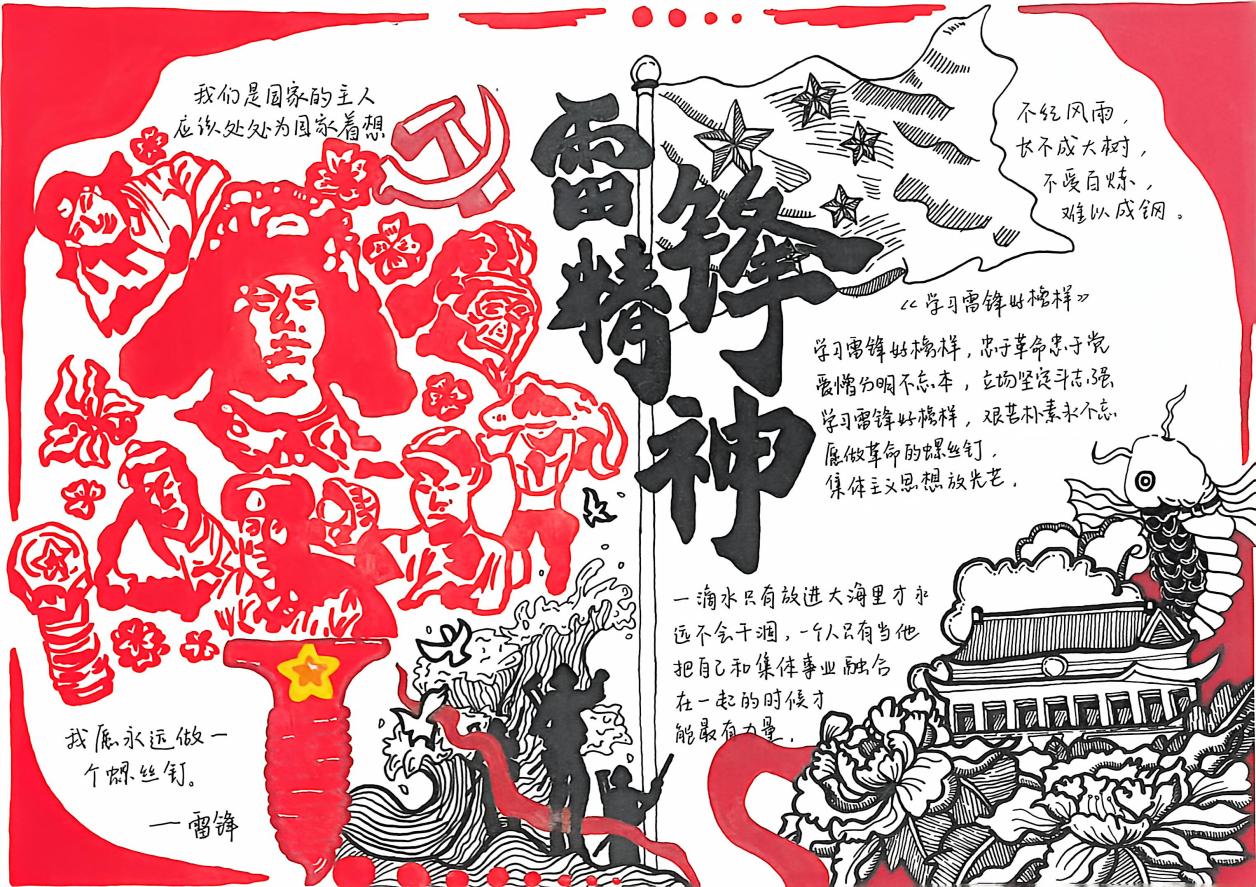 我们是国家的主人
应该处处为国家着想
雷锋
精神
不经风雨，
长不成大树，
不受百炼，
难以成钢。
《学习雷锋好榜样》
学习雷锋好榜样，忠于革命忠于党
爱憎分明不忘本，立场坚定斗志强
学习雷锋好榜样，艰苦朴素永不忘
愿做革命的螺丝钉，
集体主义思想放光芒。
一滴水只有放进大海里才永
远不会干涸，一个人只有当他
把自己和集体事业融合
在一起的时候才
能最有力量。
我愿永远做一
个螺丝钉。
——雷锋